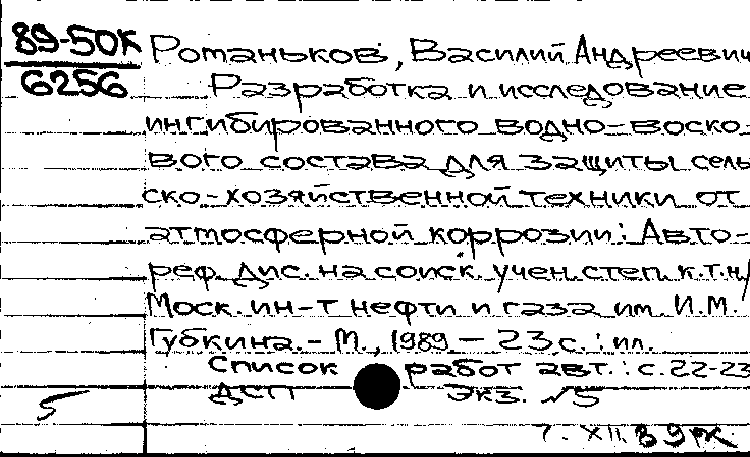 89-50К
6256
Романьков, Василий Андреевич
Разработка и исследование
ингибированного водно-воско-
вого состава для защиты сель
ско-хозяйственной техники от
атмосферной коррозии: Авто-
реф. дис. на соиск. учен. степ. к.т.н/
Моск. ин-т нефти и газа им. И.М.
Губкина. - М., 1989 - 23 с. : ил.
Список работ авт.: с. 22-23
ДСП Экз. №5
5
7. XII. 89